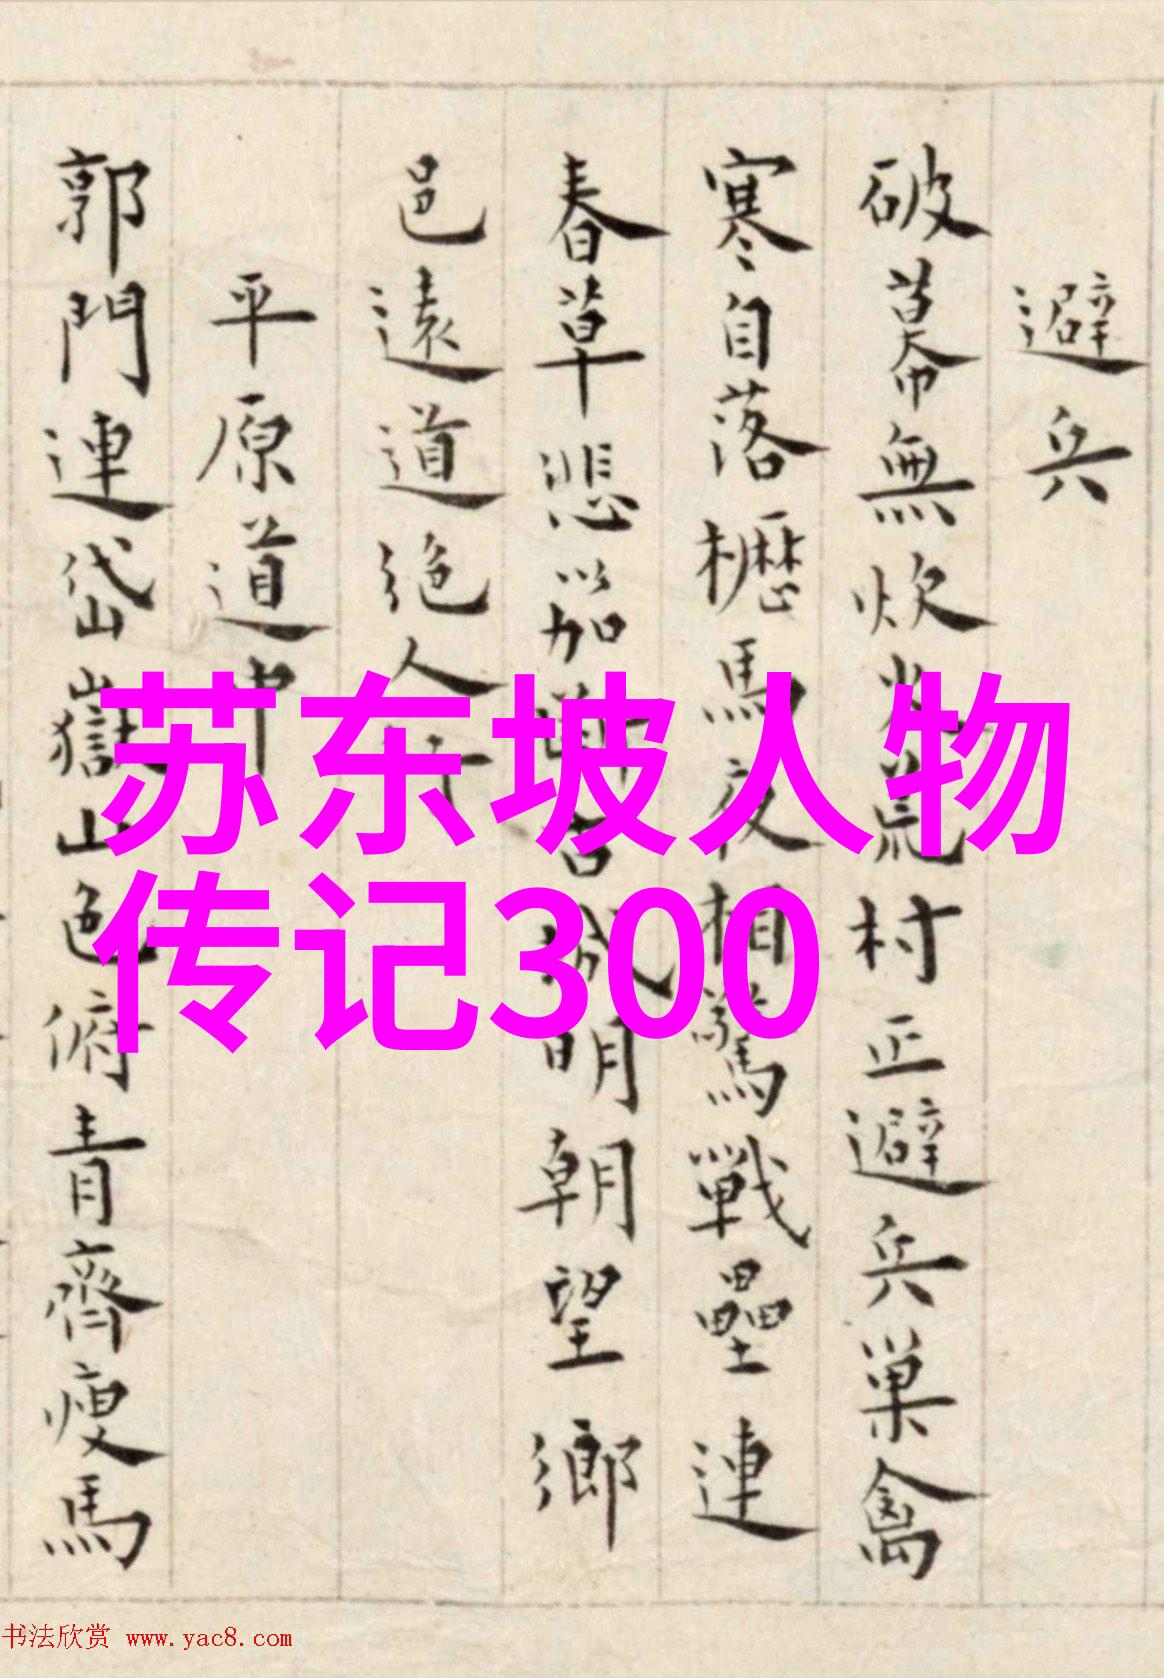 避兵
破幕無炊火荒村正避兵巢禽
寒自落櫪馬夜相驚戰壘連
春草悲笳古城明朝望鄉
邑遠道絶人行
平原道中
郭門連岱嶽山色俯青齊瘦馬
苏东坡人物
传记300
书法欣赏 www.yac8.com